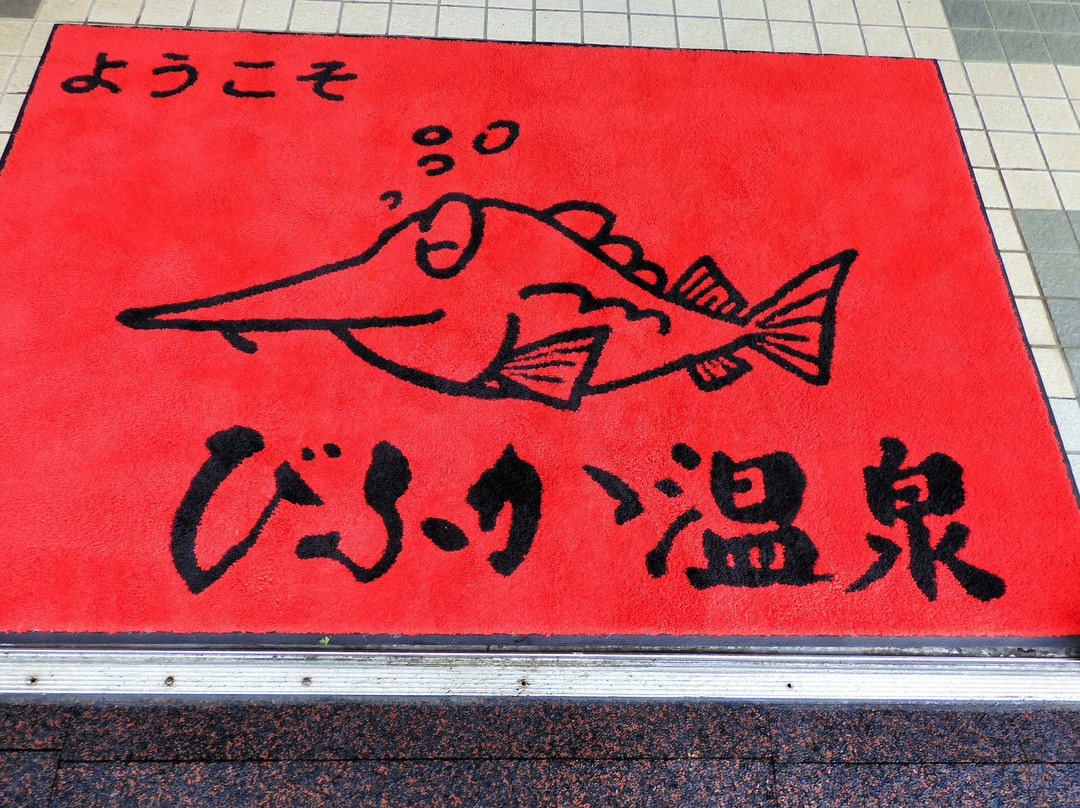 ようこそ
びふか温泉